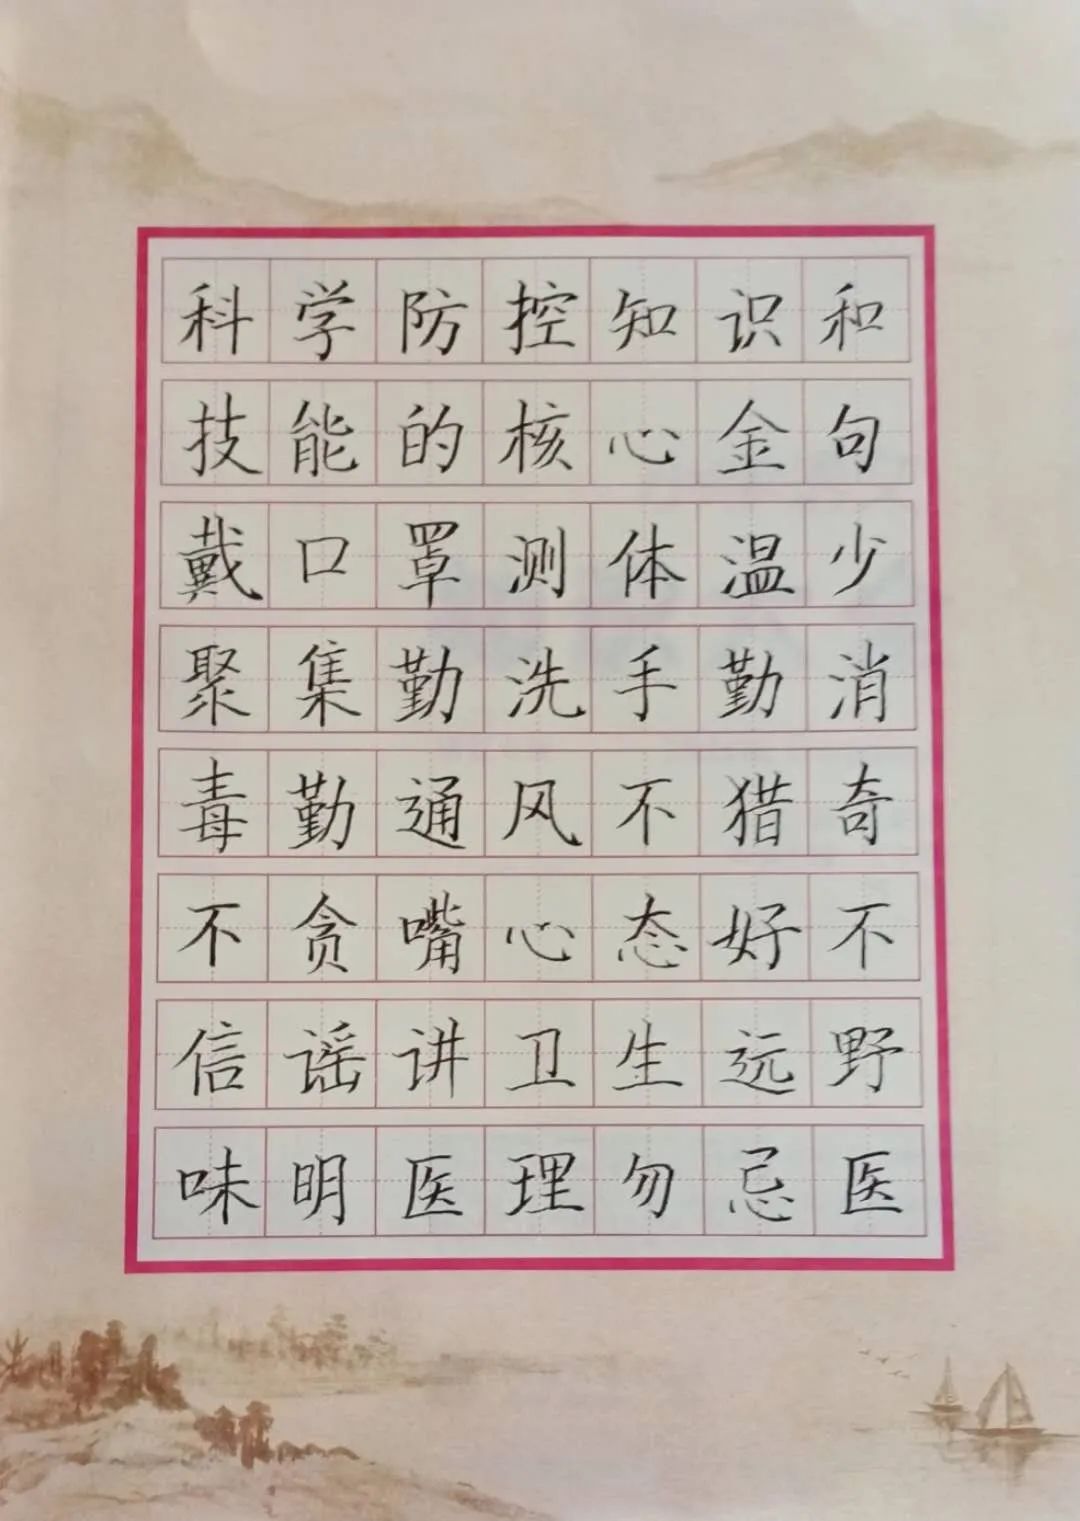 科学防控知识和
技能的核心金句
戴口罩测体温少
聚集勤洗手勤消
毒勤通风不猎奇
不贪嘴心态好不
信谣讲卫生远野
味明医理勿忌医